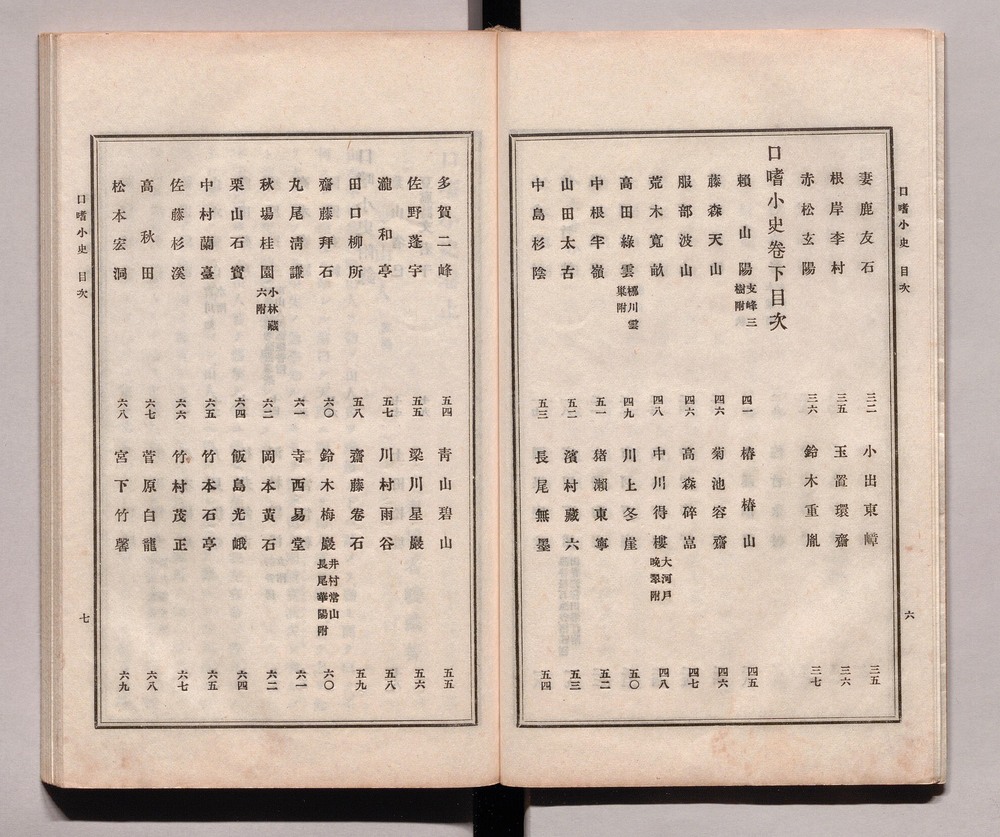 口嗜小史　目次
妻鹿友石　三二　小出東嶂　三五
根岸李村　三五　玉置環齋　三六
赤松玄陽　三六　鈴木重胤　三七
口嗜小史卷下目次
賴山陽　支峰三樹附　四一　椿椿山　四五
藤森天山　四六　菊池容齋　四六
服部波山　四六　高森碎嵓　四七
荒木寬畝　四八　中川得樓　大河戸晚翠附　四八
高田綠雲　梛川雲巢附　四九　川上冬崖　五〇
中根半嶺　五一　猪瀨東寧　五二
山田太古　五二　濱村藏六　五三
中島杉陰　五三　長尾無墨　五四
六
多賀二峰　五四　靑山碧山　五五
佐野蓬宇　五五　梁川星巖　五六
瀧和亭　五七　川村雨谷　五八
田口柳所　五八　齋藤卷石　五九
齋藤拜石　六〇　鈴木梅巖　井村常山長尾華陽附　六〇
丸尾淸謙　六一　寺西易堂　六一
秋場桂園　小林藏六附　六二　岡本黃石　六二
栗山石寶　六四　飯島光峨　六四
中村蘭臺　六五　竹本石亭　六五
佐藤杉溪　六六　竹村茂正　六七
高秋田　六七　菅原白龍　六八
松本宏洞　六八　宮下竹馨　六九
口嗜小史　目次
七